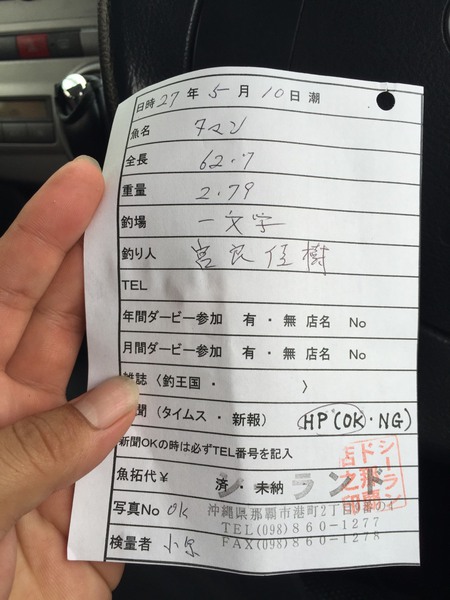 日時 27 年 5 月 10 日 潮
魚名 タマン
全長 62.7
重量 2.79
釣場 一文字
釣り人 宮良佳樹
TEL
年間ダービー参加 有・無 店名 No
月間ダービー参加 有・無 店名 No
雑誌〈釣王国・ 〉
聞(タイムス・新報) HP(OK・NG)
新聞OKの時は必ずTEL番号を記入
魚拓代¥ 済・未納
シーランド
シーランド那覇店之印
写真No OK
沖縄県那覇市港町2丁目
TEL(098)860-1277
FAX(098)860-1278
検量者